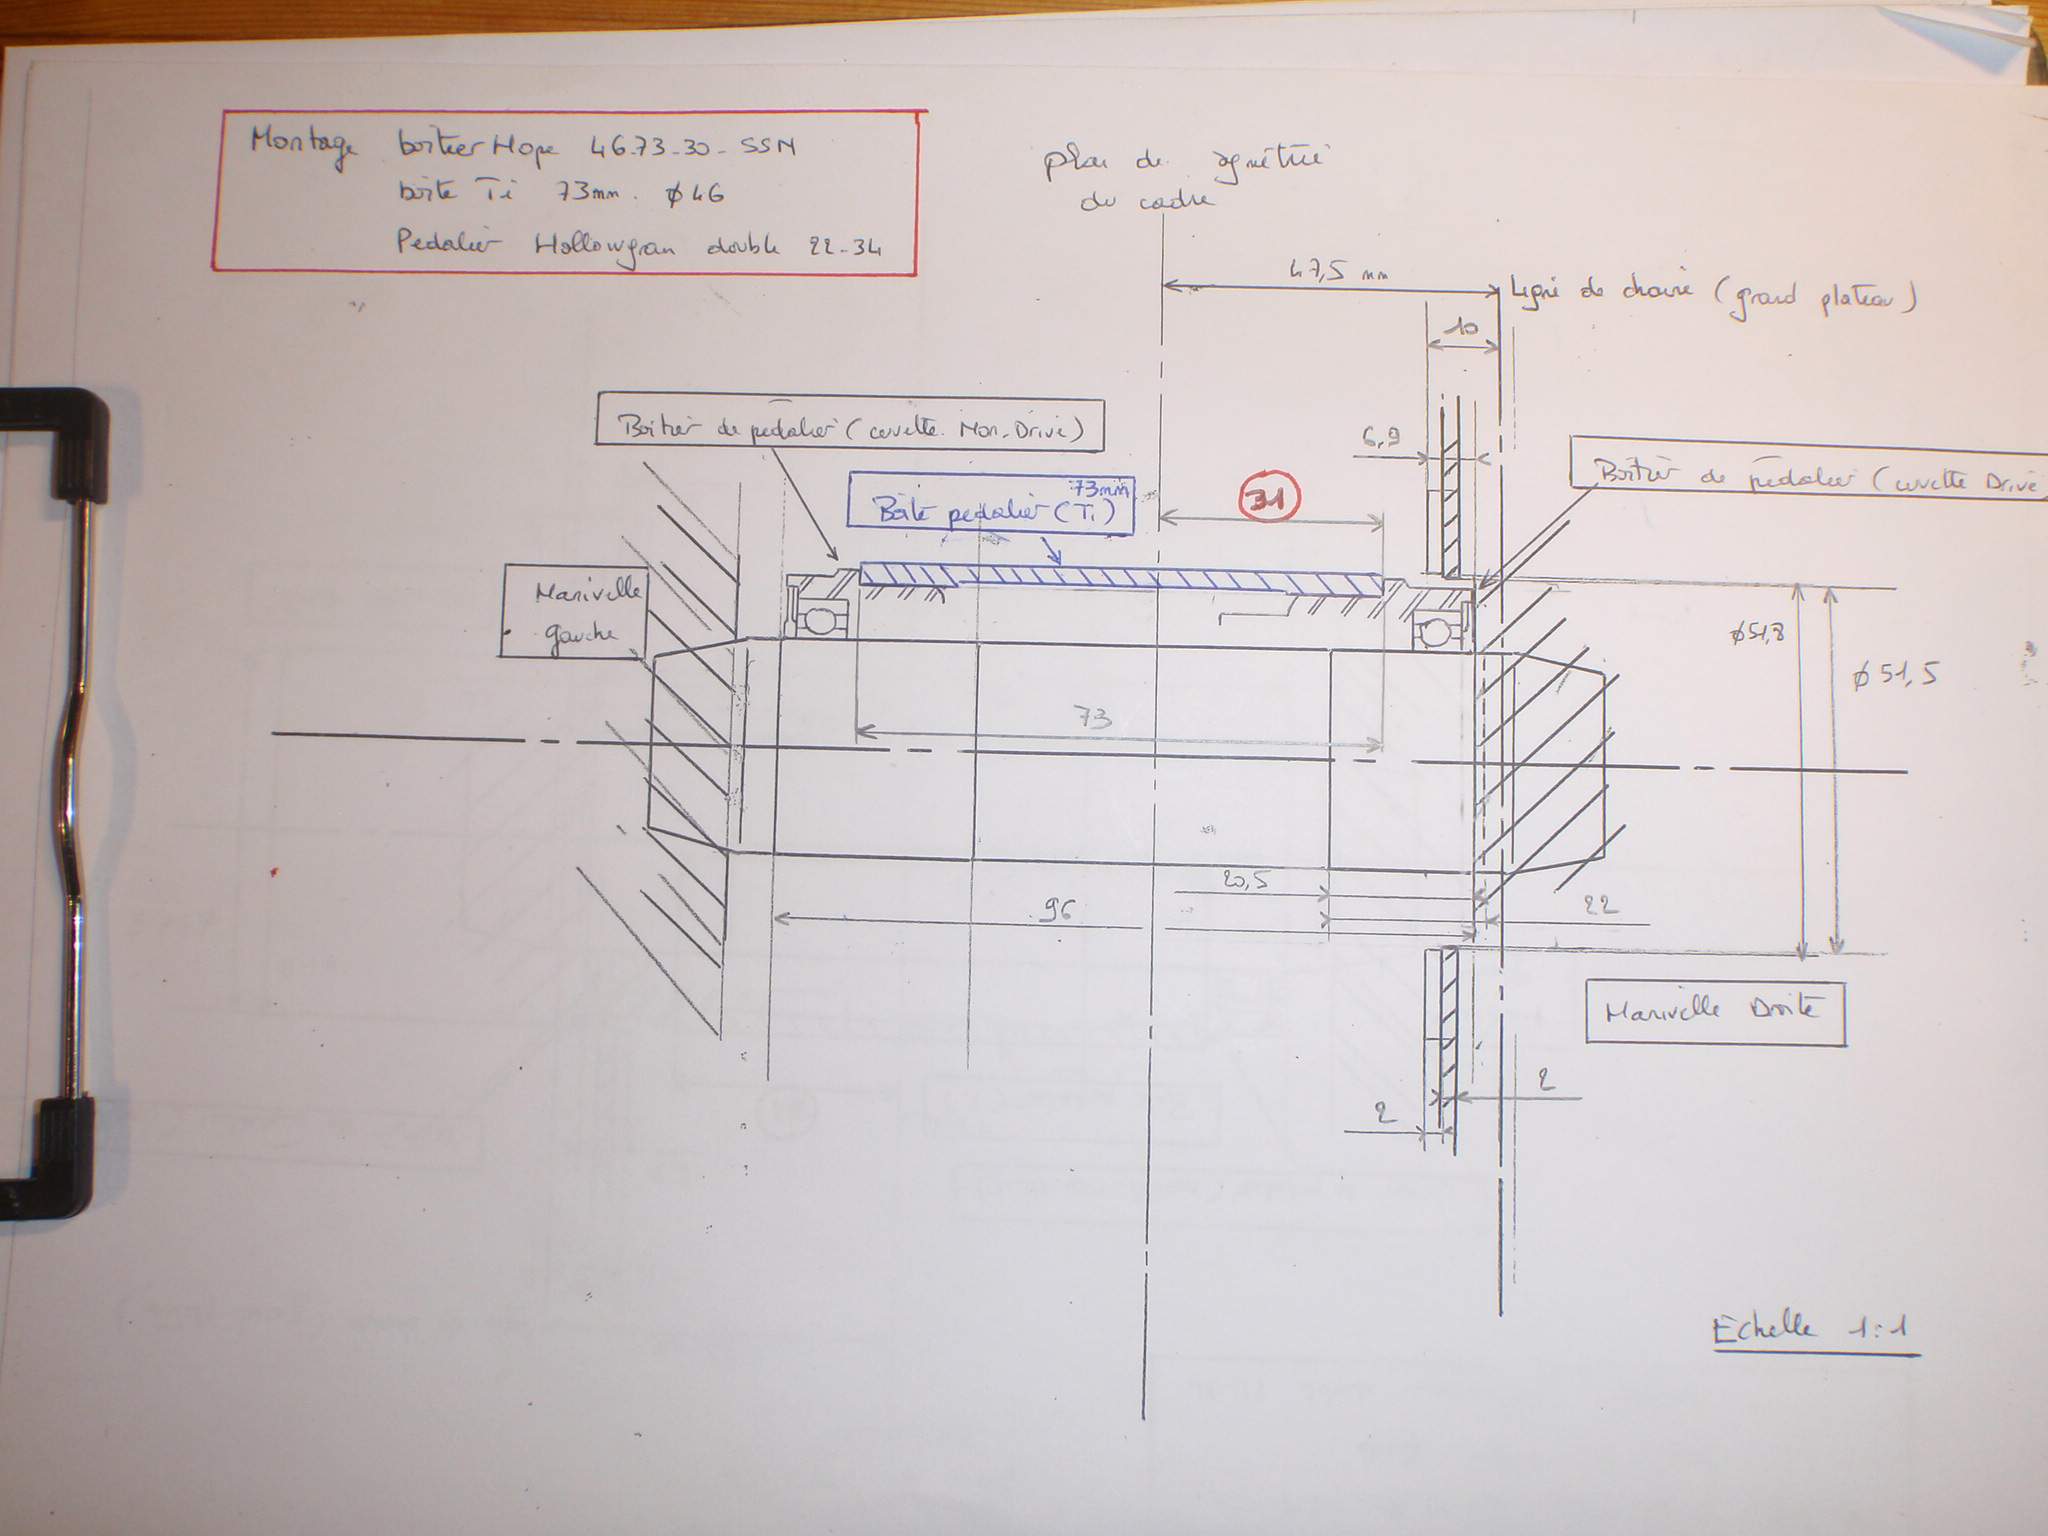 Montage boitier Hope 46.73-30-SSM
boite Ti 73mm. ϕ46
Pédalier Hollowgran double 22-34
plan de symétrie
du cadre
47,5 mm
Ligne de chaine (grand plateau)
10
Boitier de pédalier (cuvette Non-Drive)
6,9
Boitier de pédalier (cuvette Drive
73mm
Boite pédalier (Ti)
31
Manivelle
gauche
ϕ51,8
ϕ51,5
73
20,5
96
22
Manivelle Droite
2
2
Echelle 1:1